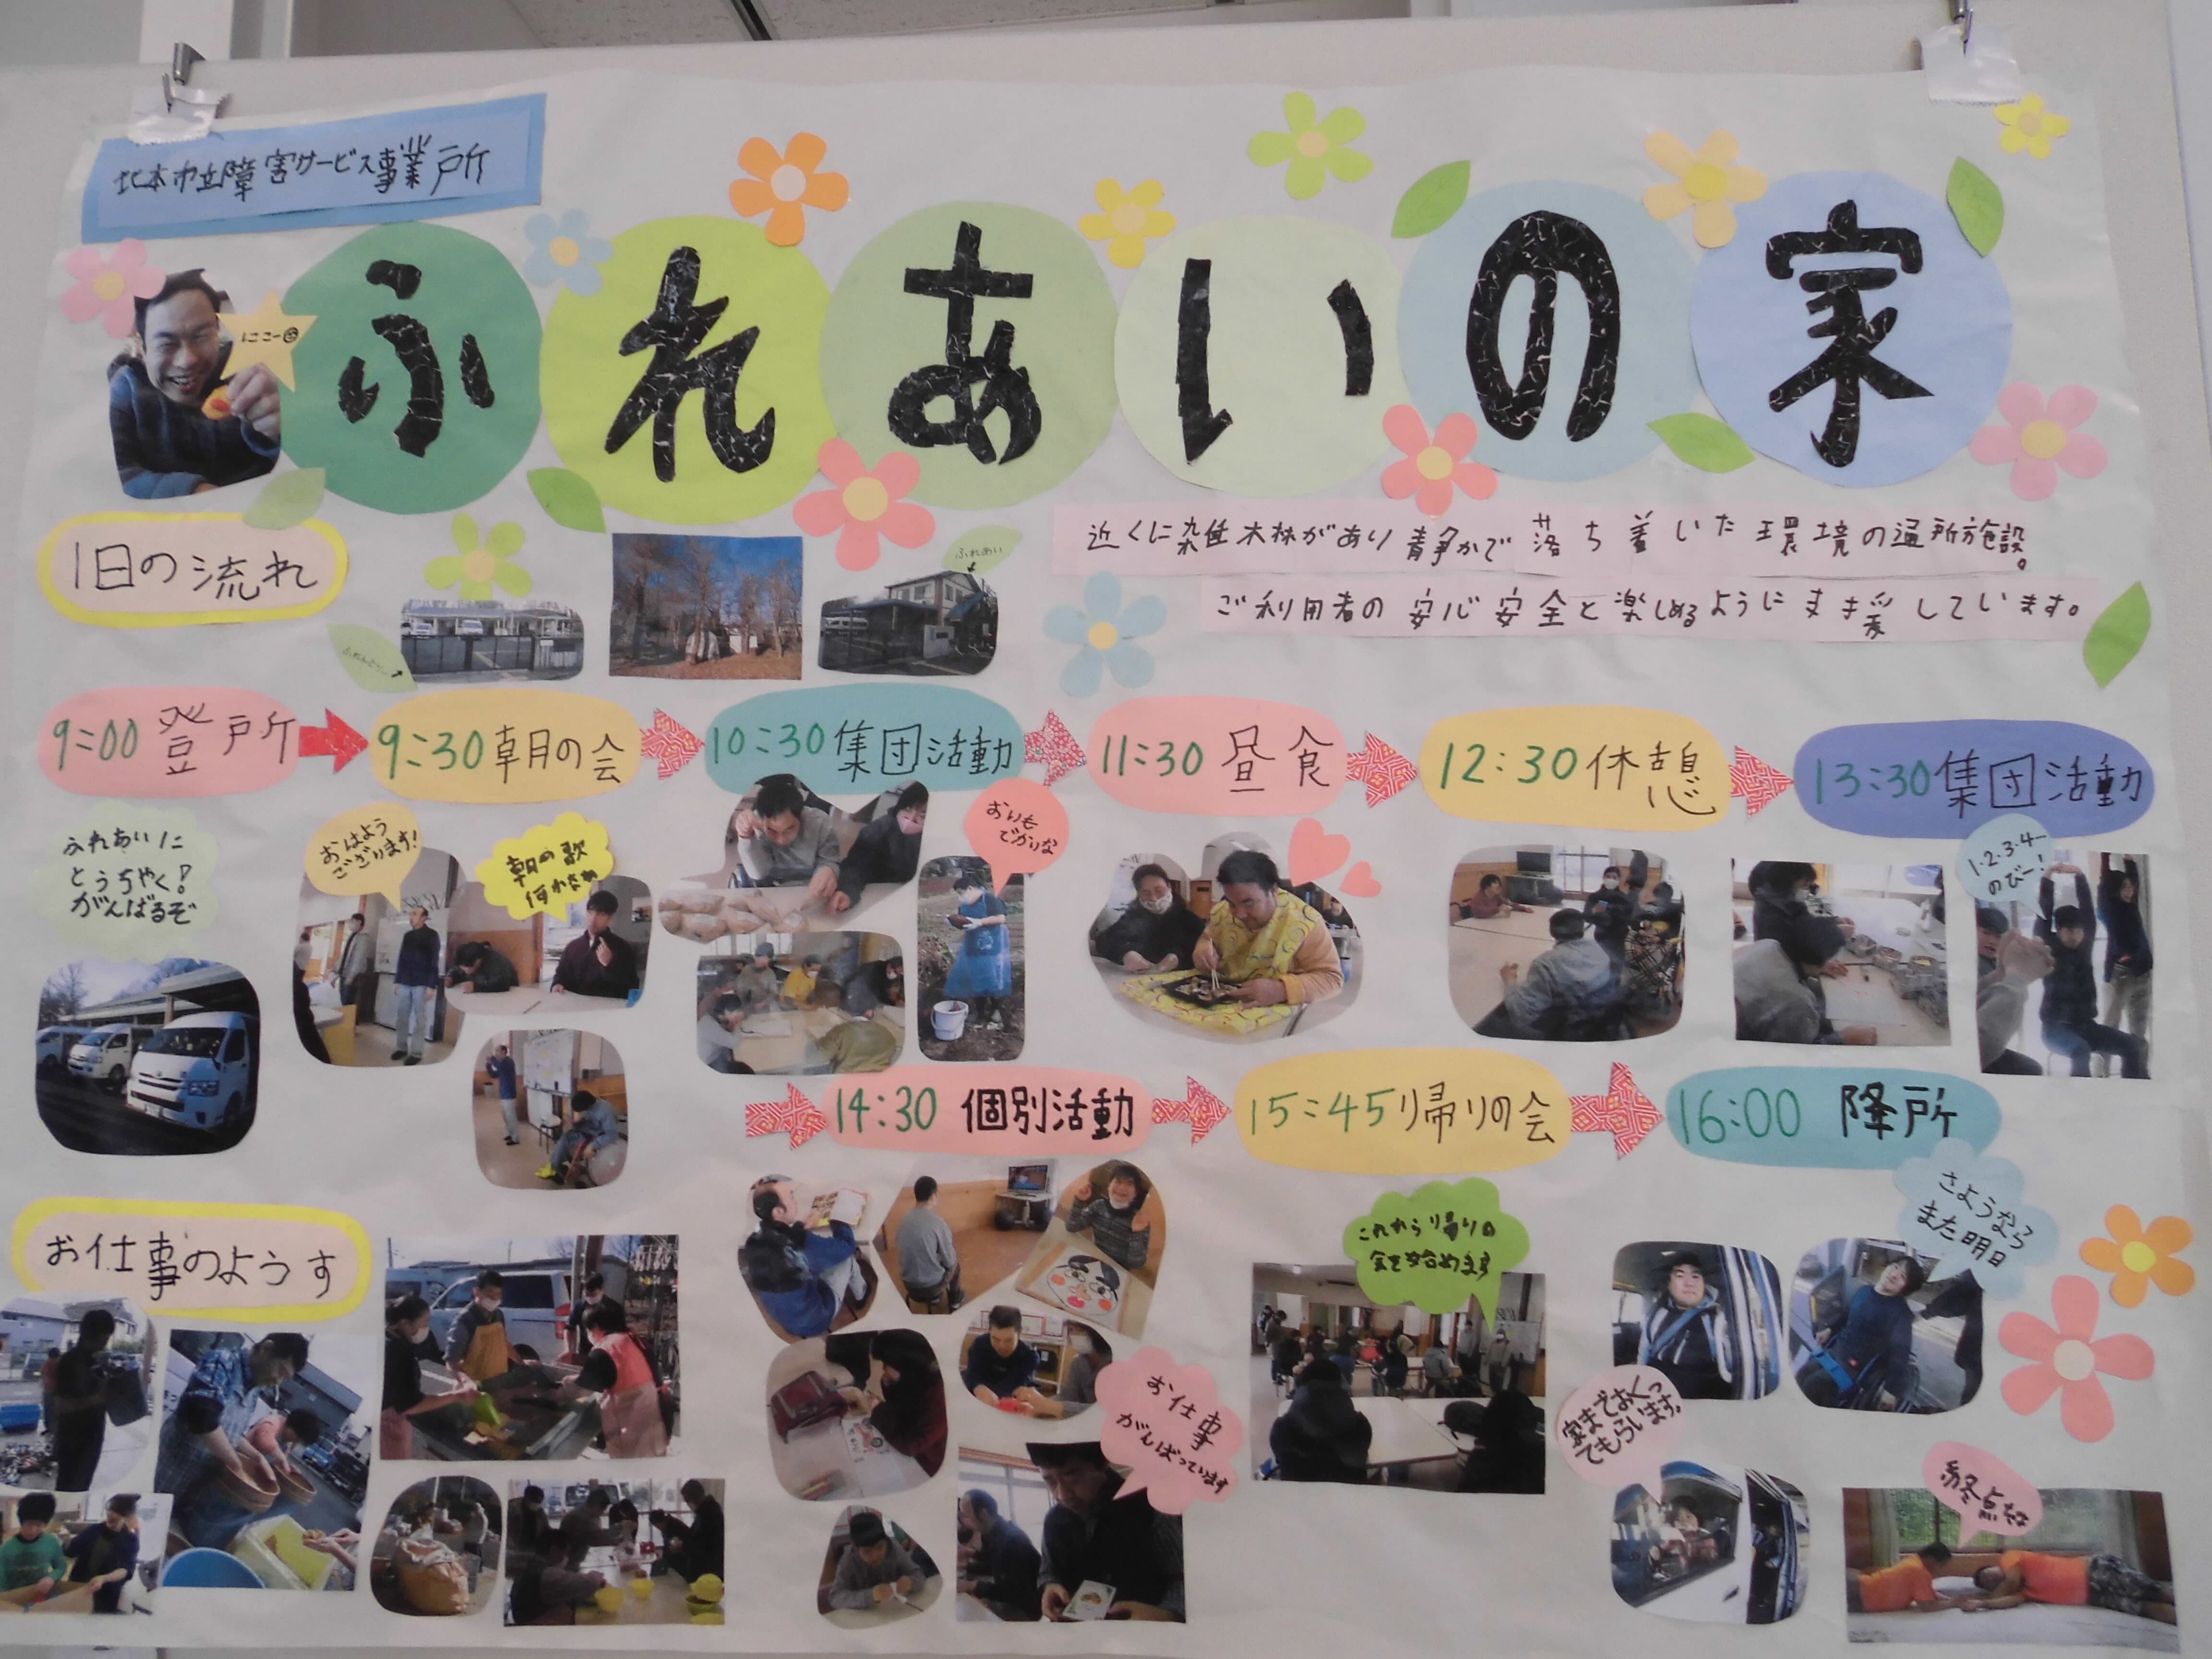 北本市立障害サービス事業所
ふれあいの家
にこー
1日の流れ
ふれあい
近くに雑木林があり静かで落ち着いた環境の通所施設。
ご利用者の安心安全と楽しめるように支援しています。
9:00 登所
9:30 朝の会
10:30 集団活動
11:30 昼食
12:30 休憩
13:30 集団活動
ふれあいに
とうちゃく!
がんばるぞ
おはよう
ございます!
朝の歌
何かなぁ
おいも
でかいな
1・2・3・4ー
のびー!
14:30 個別活動
15:45 帰りの会
16:00 降所
お仕事のようす
これから帰りの
会を始めます
さようなら
また明日
お仕事
がんばっています
家までおくっ
てもらいます!